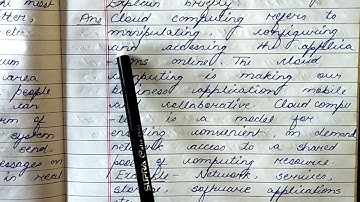 Explain briefly
ht most
tters,
Ans Cloud computing refers to
manipulating, configuring
and accessing the applica
-tions online. The cloud
um
computing is making our
area
business application mobile
people
and collaborative. Cloud compu
can
-ting is a model for
rm of
enabling convenient, on demand
system
network access to a shared
send,
pool of computing resource.
essages on
Example - Network, services,
in real
storage, software applications
etc